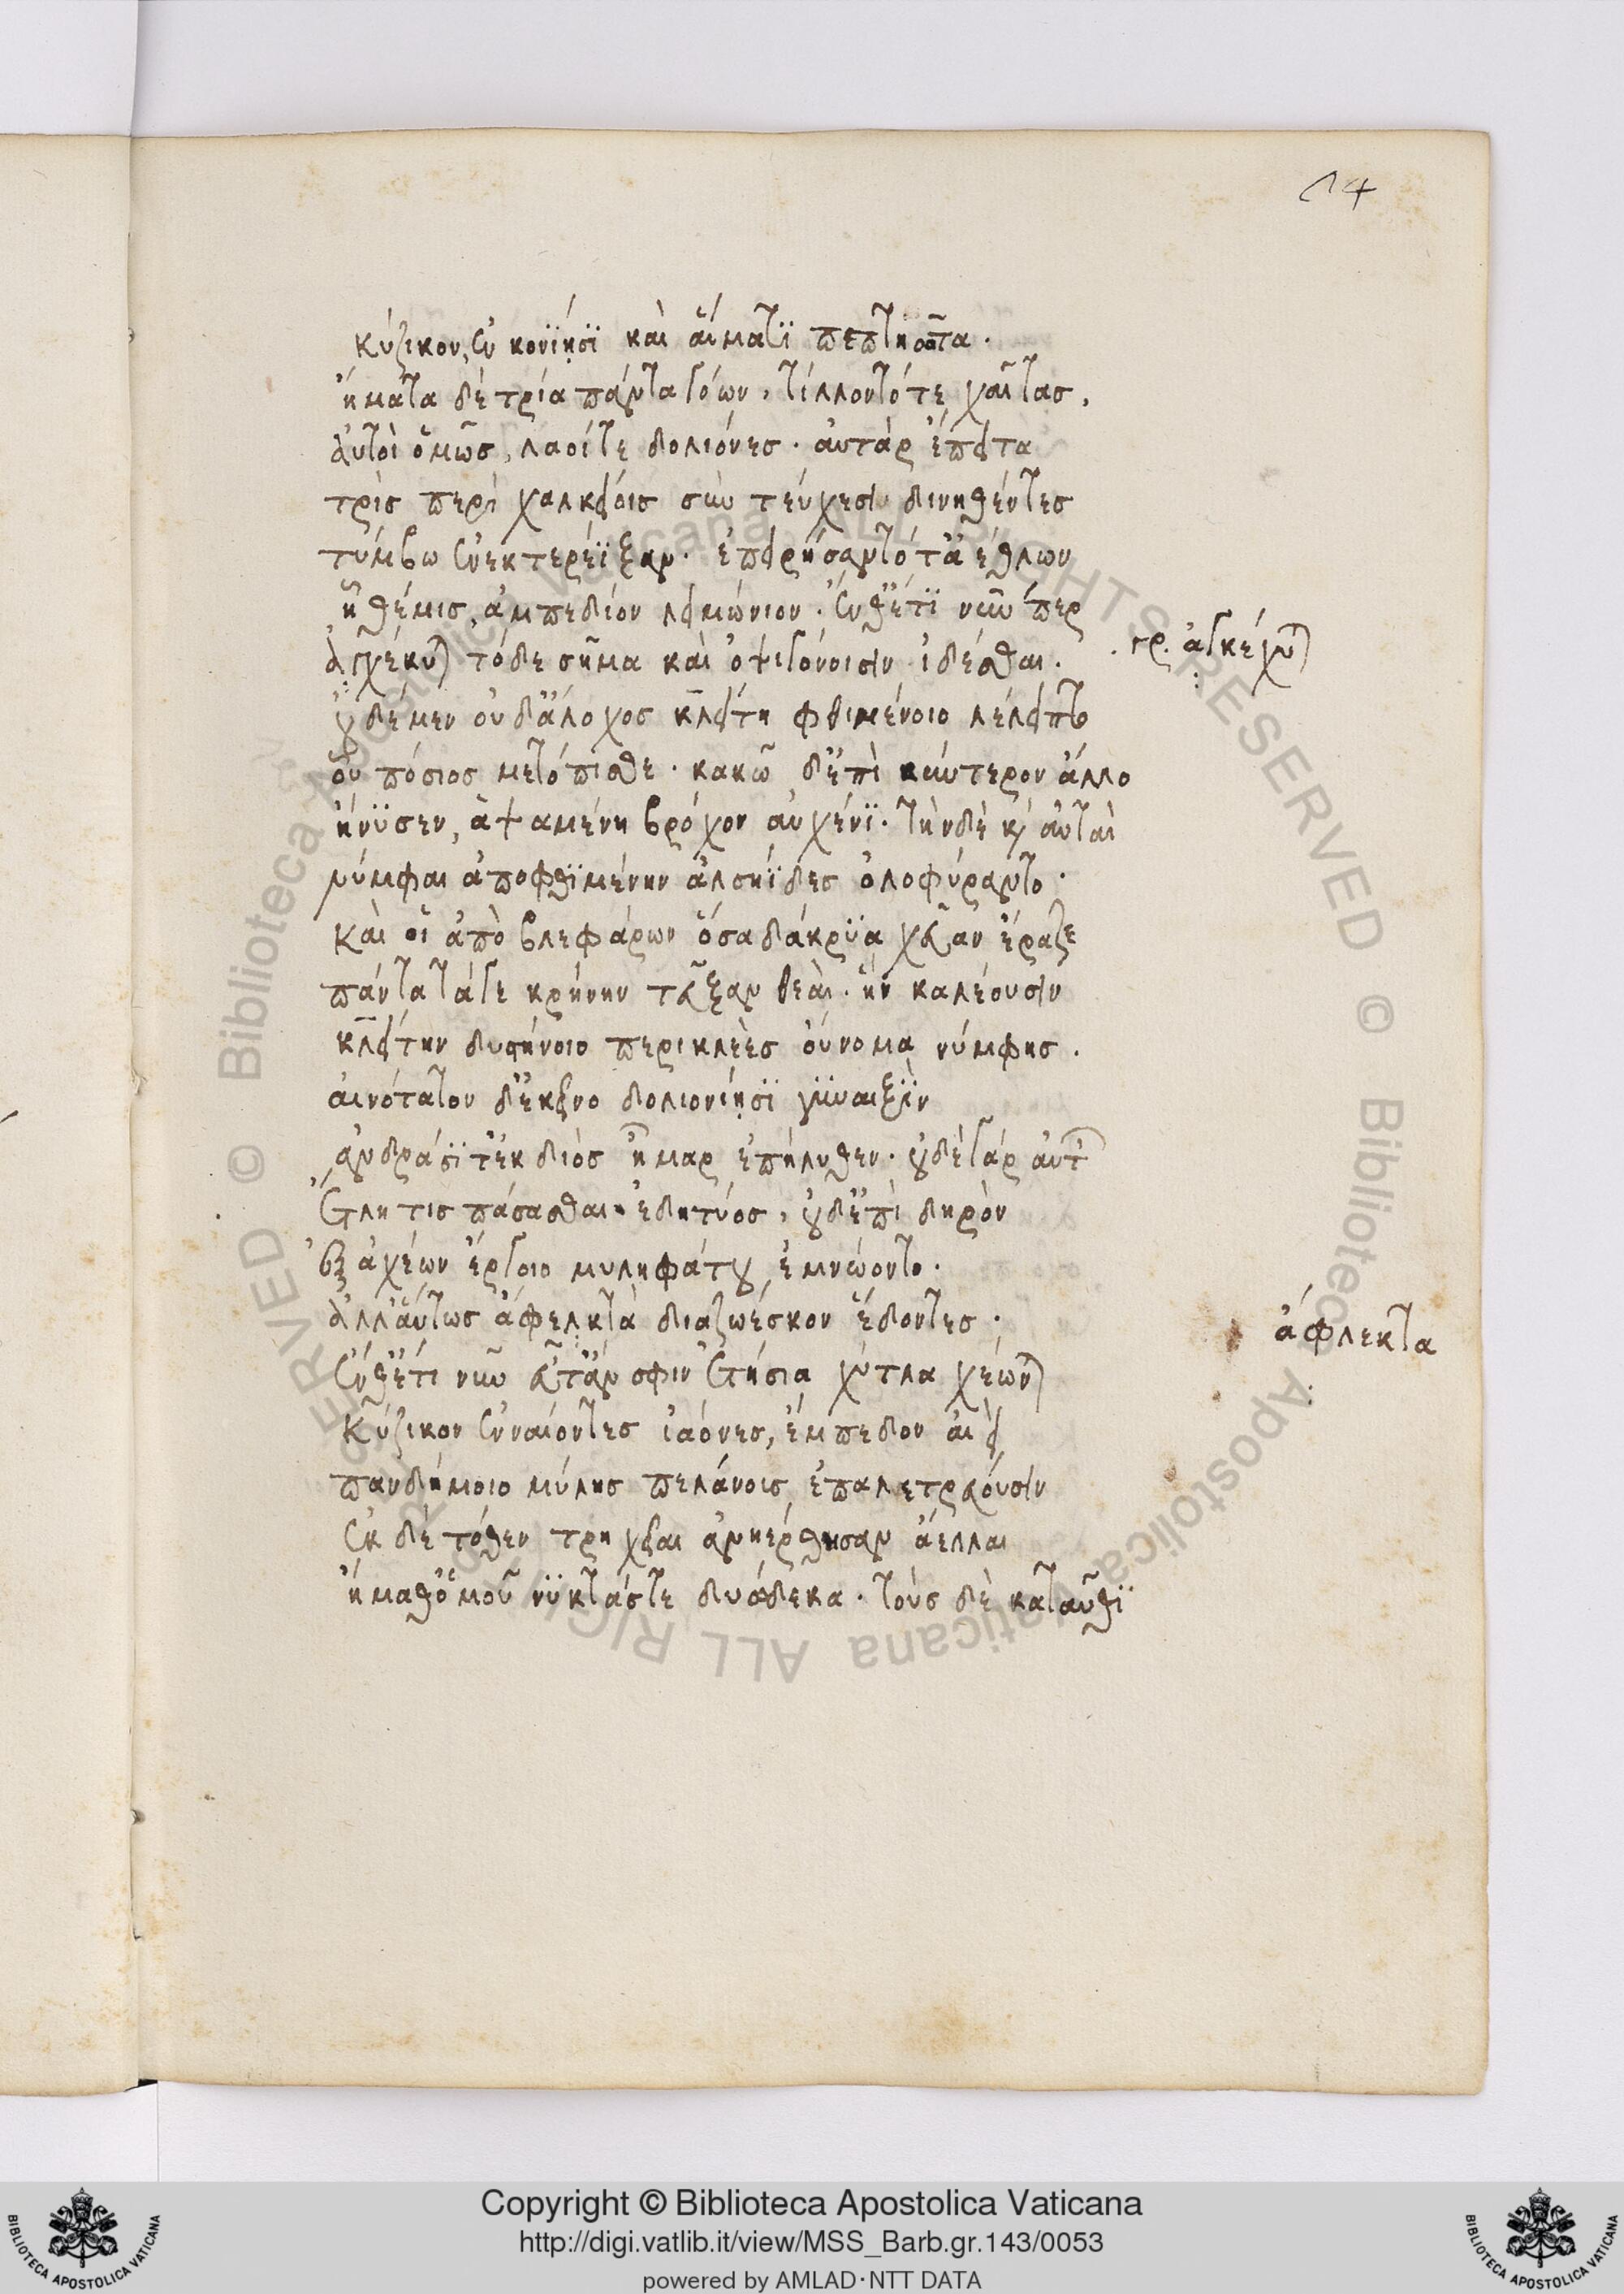 14
κύζικον, ἐν κονίῃσι καὶ αἵματι πεπτηῶτα.
ἤματα δὲ τρία πάντα γόων, τίλλοντό τε χαίτας,
αὐτοὶ ὁμῶς, λαοί τε δολιόνες. αὐτὰρ ἔπειτα
τρὶς περὶ χαλκείοις σὺν τεύχεσιν δινηθέντες
τύμβω ἐνεκτερέϊξαν. ἐπειρήσαντό τ' ἀέθλων
ἣ θέμις, ἀμπεδίον λειμώνιον. ἔνθ' ἔτι νῦν περ
ἀγχέκυται τόδε σῆμα καὶ ὀψιγόνοισιν ἰδέσθαι.
γρ. ἀγκέχυται
οὐδὲ μὲν οὐδ' ἄλοχος κλείτη φθιμένοιο λέλειπτο
οὗ πόσιος μετόπισθε. κακῶ δ' ἔπι κύντερον ἄλλο
ἤνυσεν, ἁψαμένη βρόχον αὐχένι. τὴν δὲ καὶ αὐταὶ
νύμφαι ἀποφθιμένην ἀλσηΐδες ὀλοφύραντο.
καὶ οἱ ἀπὸ βλεφάρων ὅσα δάκρυα χεῦαν ἔραζε
πάντα τάγε κρήνην τεῦξαν θεαὶ. ἣν καλέουσιν
κλείτην δυστήνοιο περικλεὲς οὔνομα νύμφης.
αἰνότατον δ' ἐκεῖνο δολιονίῃσι γυναιξὶν
ἀνδράσι τ' ἐκ διὸς ἦμαρ ἐπήλυθεν. οὐδὲ γὰρ αὐτῶν
ἔτλη τις πάσασθαι ἐδητύος, οὐδ' ἐπὶ δηρὸν
ἐξ ἀχέων ἔργοιο μυληφάτου ἐμνώοντο.
ἀλλ' αὕτως ἄφελκτα διαζωέσκον ἔδοντες.
ἄφλεκτα
ἔνθ' ἔτι νῦν εὖτ' ἄν σφιν ἐτήσια χύτλα χέωνται
κύζικον ἐνναίοντες ἰάονες, ἔμπεδον αἰεὶ
πανδήμοιο μύλης πελάνοις ἐπαλετρεύουσιν
ἐκ δὲ τόθεν τρηχεῖαι ἀνηέρθησαν ἄελλαι
ἤμαθ' ὁμοῦ νύκτάς τε δυώδεκα. τοὺς δὲ καταῦθι
Copyright © Biblioteca Apostolica Vaticana
http://digi.vatlib.it/view/MSS_Barb.gr.143/0053
powered by AMLAD·NTT DATA